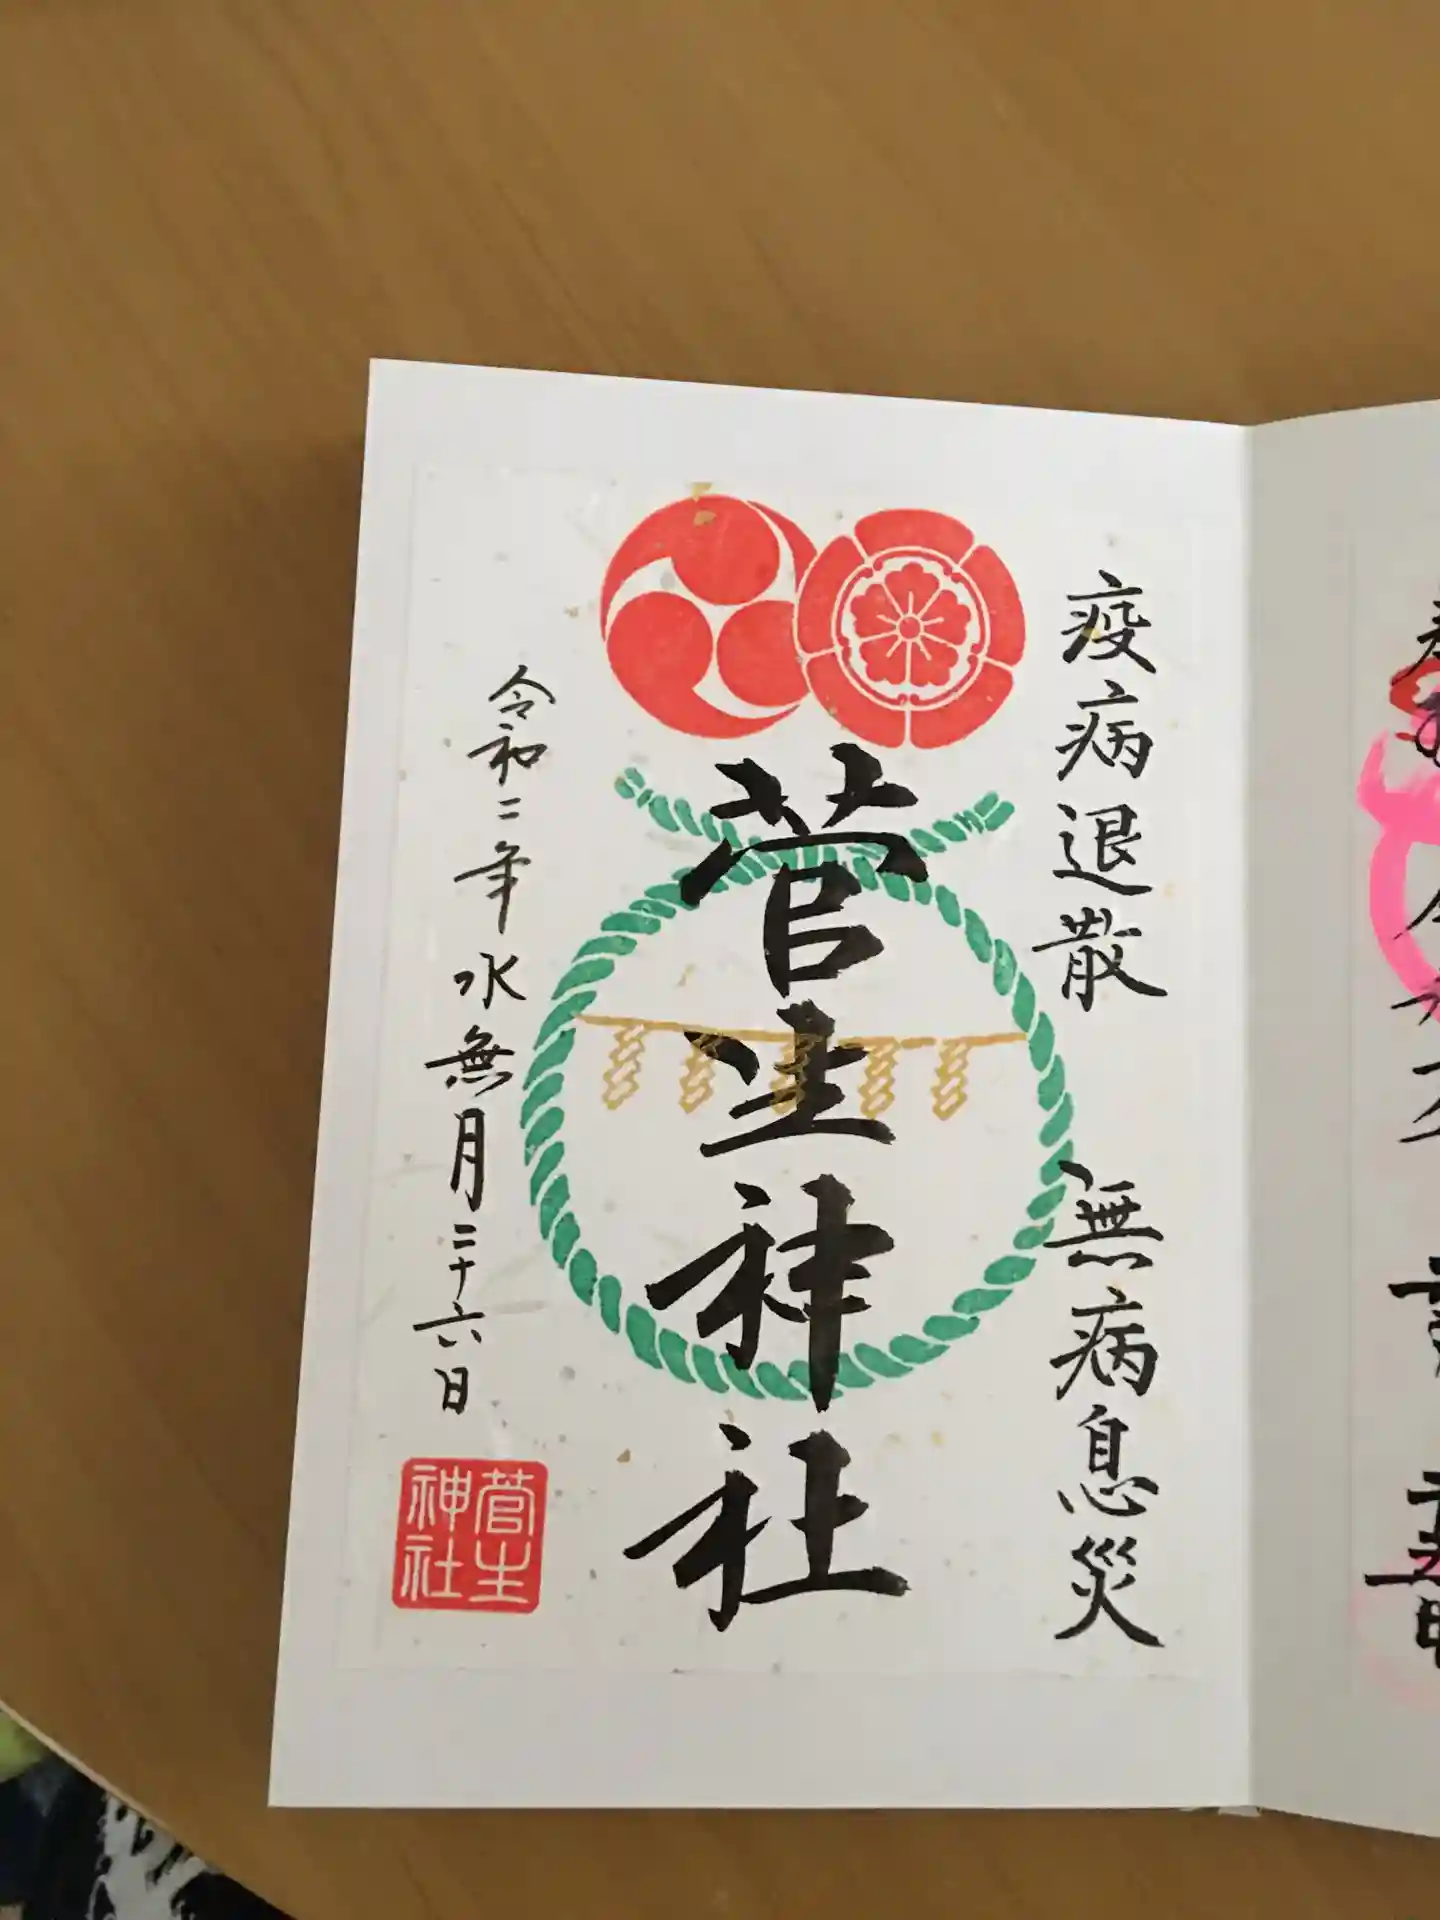 疫病退散　無病息災
菅生神社
令和二年水無月二十六日
菅生
神社